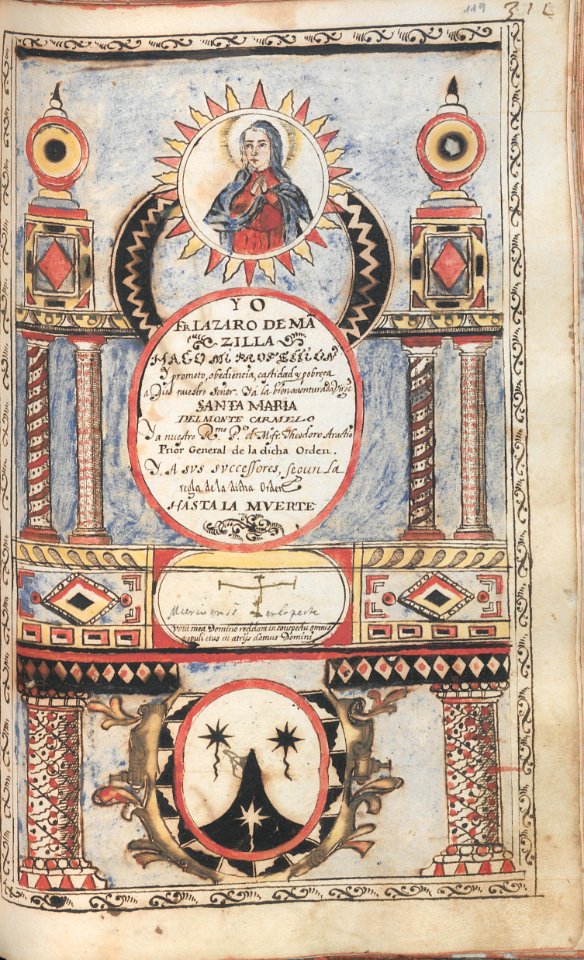 119
YO
FR LAZARO DE MÃ
ZILLA
HAGO MI PROFESSION
Y prometo, obediencia, castidad y pobreza
a Dios nuestro Señor. Y a la bienaventurada
SANTA MARIA
DEL MONTE CARMELO
Y a nuestro R.mo P. el M. fr. Theodoro
Prior General de la dicha Orden.
Y A sus successores, segun la
regla de la dicha Orden
HASTA LA MVERTE
Murio en la peste
Vota mea Domino reddam in conspectu omnis
populi eius in atrijs domus Domini